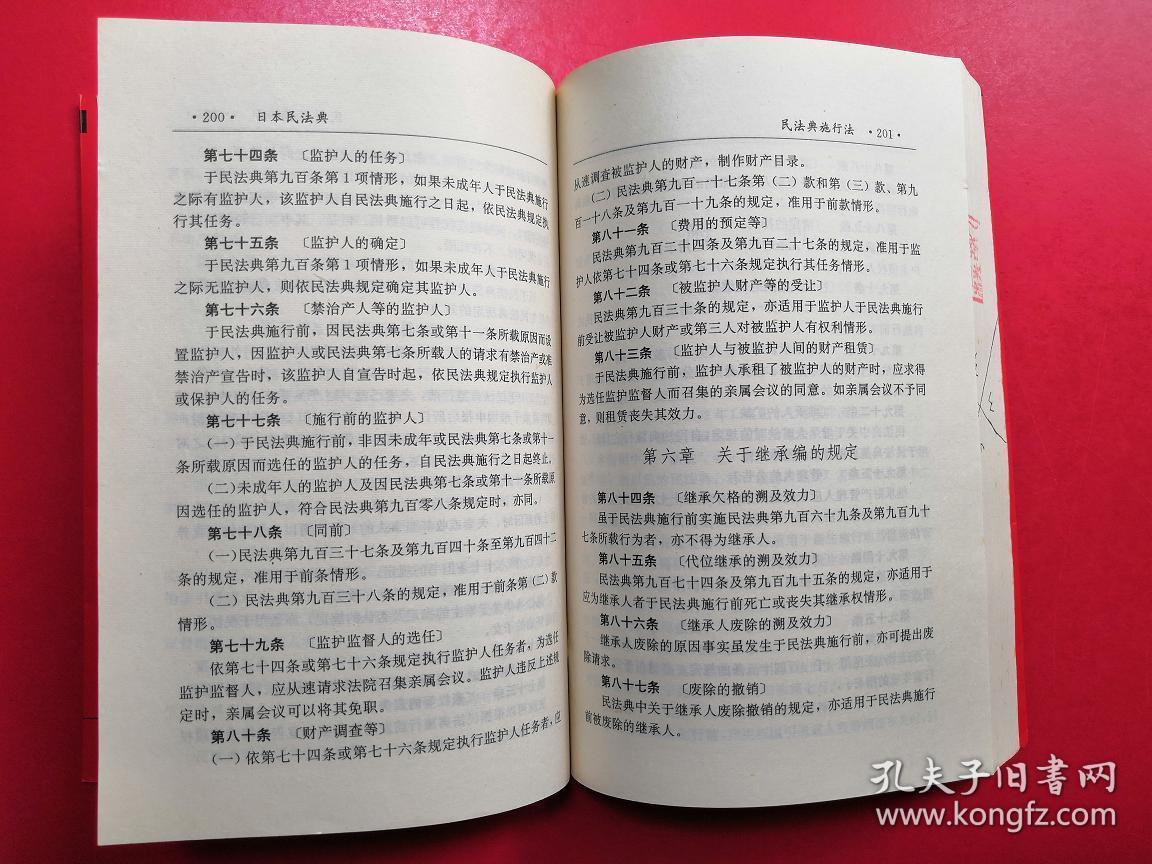 ·200· 日本民法典
第七十四条 〔监护人的任务〕
于民法典第九百条第1项情形，如果未成年人于民法典施行
之际有监护人，该监护人自民法典施行之日起，依民法典规定执
行其任务。
第七十五条 〔监护人的确定〕
于民法典第九百条第1项情形，如果未成年人于民法典施行
之际无监护人，则依民法典规定确定其监护人。
第七十六条 〔禁治产人等的监护人〕
于民法典施行前，因民法典第七条或第十一条所载原因而设
置监护人，因监护人或民法典第七条所载人的请求有禁治产或准
禁治产宣告时，该监护人自宣告时起，依民法典规定执行监护人
或保护人的任务。
第七十七条 〔施行前的监护人〕
(一)于民法典施行前，非因未成年或民法典第七条或第十一
条所载原因而选任的监护人的任务，自民法典施行之日起终止。
(二)未成年人的监护人及因民法典第七条或第十一条所载原
因选任的监护人，符合民法典第九百零八条规定时，亦同。
第七十八条 〔同前〕
(一)民法典第九百三十七条及第九百四十条至第九百四十二
条的规定，准用于前条情形。
(二)民法典第九百三十八条的规定，准用于前条第(二)款
情形。
第七十九条 〔监护监督人的选任〕
依第七十四条或第七十六条规定执行监护人任务者，为选任
监护监督人，应从速请求法院召集亲属会议。监护人违反上述规
定时，亲属会议可以将其免职。
第八十条 〔财产调查等〕
(一)依第七十四条或第七十六条规定执行监护人任务者，应
民法典施行法 ·201·
从速调查被监护人的财产，制作财产目录。
(二)民法典第九百一十七条第(二)款和第(三)款、第九
百一十八条及第九百一十九条的规定，准用于前款情形。
第八十一条 〔费用的预定等〕
民法典第九百二十四条及第九百二十七条的规定，准用于监
护人依第七十四条或第七十六条规定执行其任务情形。
第八十二条 〔被监护人财产等的受让〕
民法典第九百三十条的规定，亦适用于监护人于民法典施行
前受让被监护人财产或第三人对被监护人有权利情形。
第八十三条 〔监护人与被监护人间的财产租赁〕
于民法典施行前，监护人承租了被监护人的财产时，应求得
为选任监护监督人而召集的亲属会议的同意。如亲属会议不予同
意，则租赁丧失其效力。
第六章 关于继承编的规定
第八十四条 〔继承欠格的溯及效力〕
虽于民法典施行前实施民法典第九百六十九条及第九百九十
七条所载行为者，亦不得为继承人。
第八十五条 〔代位继承的溯及效力〕
民法典第九百七十四条及第九百九十五条的规定，亦适用于
应为继承人者于民法典施行前死亡或丧失其继承权情形。
第八十六条 〔继承人废除的溯及效力〕
继承人废除的原因事实虽发生于民法典施行前，亦可提出废
除请求。
第八十七条 〔废除的撤销〕
民法典中关于继承人废除撤销的规定，亦适用于民法典施行
前被废除的继承人。
孔夫子旧书网
www.kongfz.com